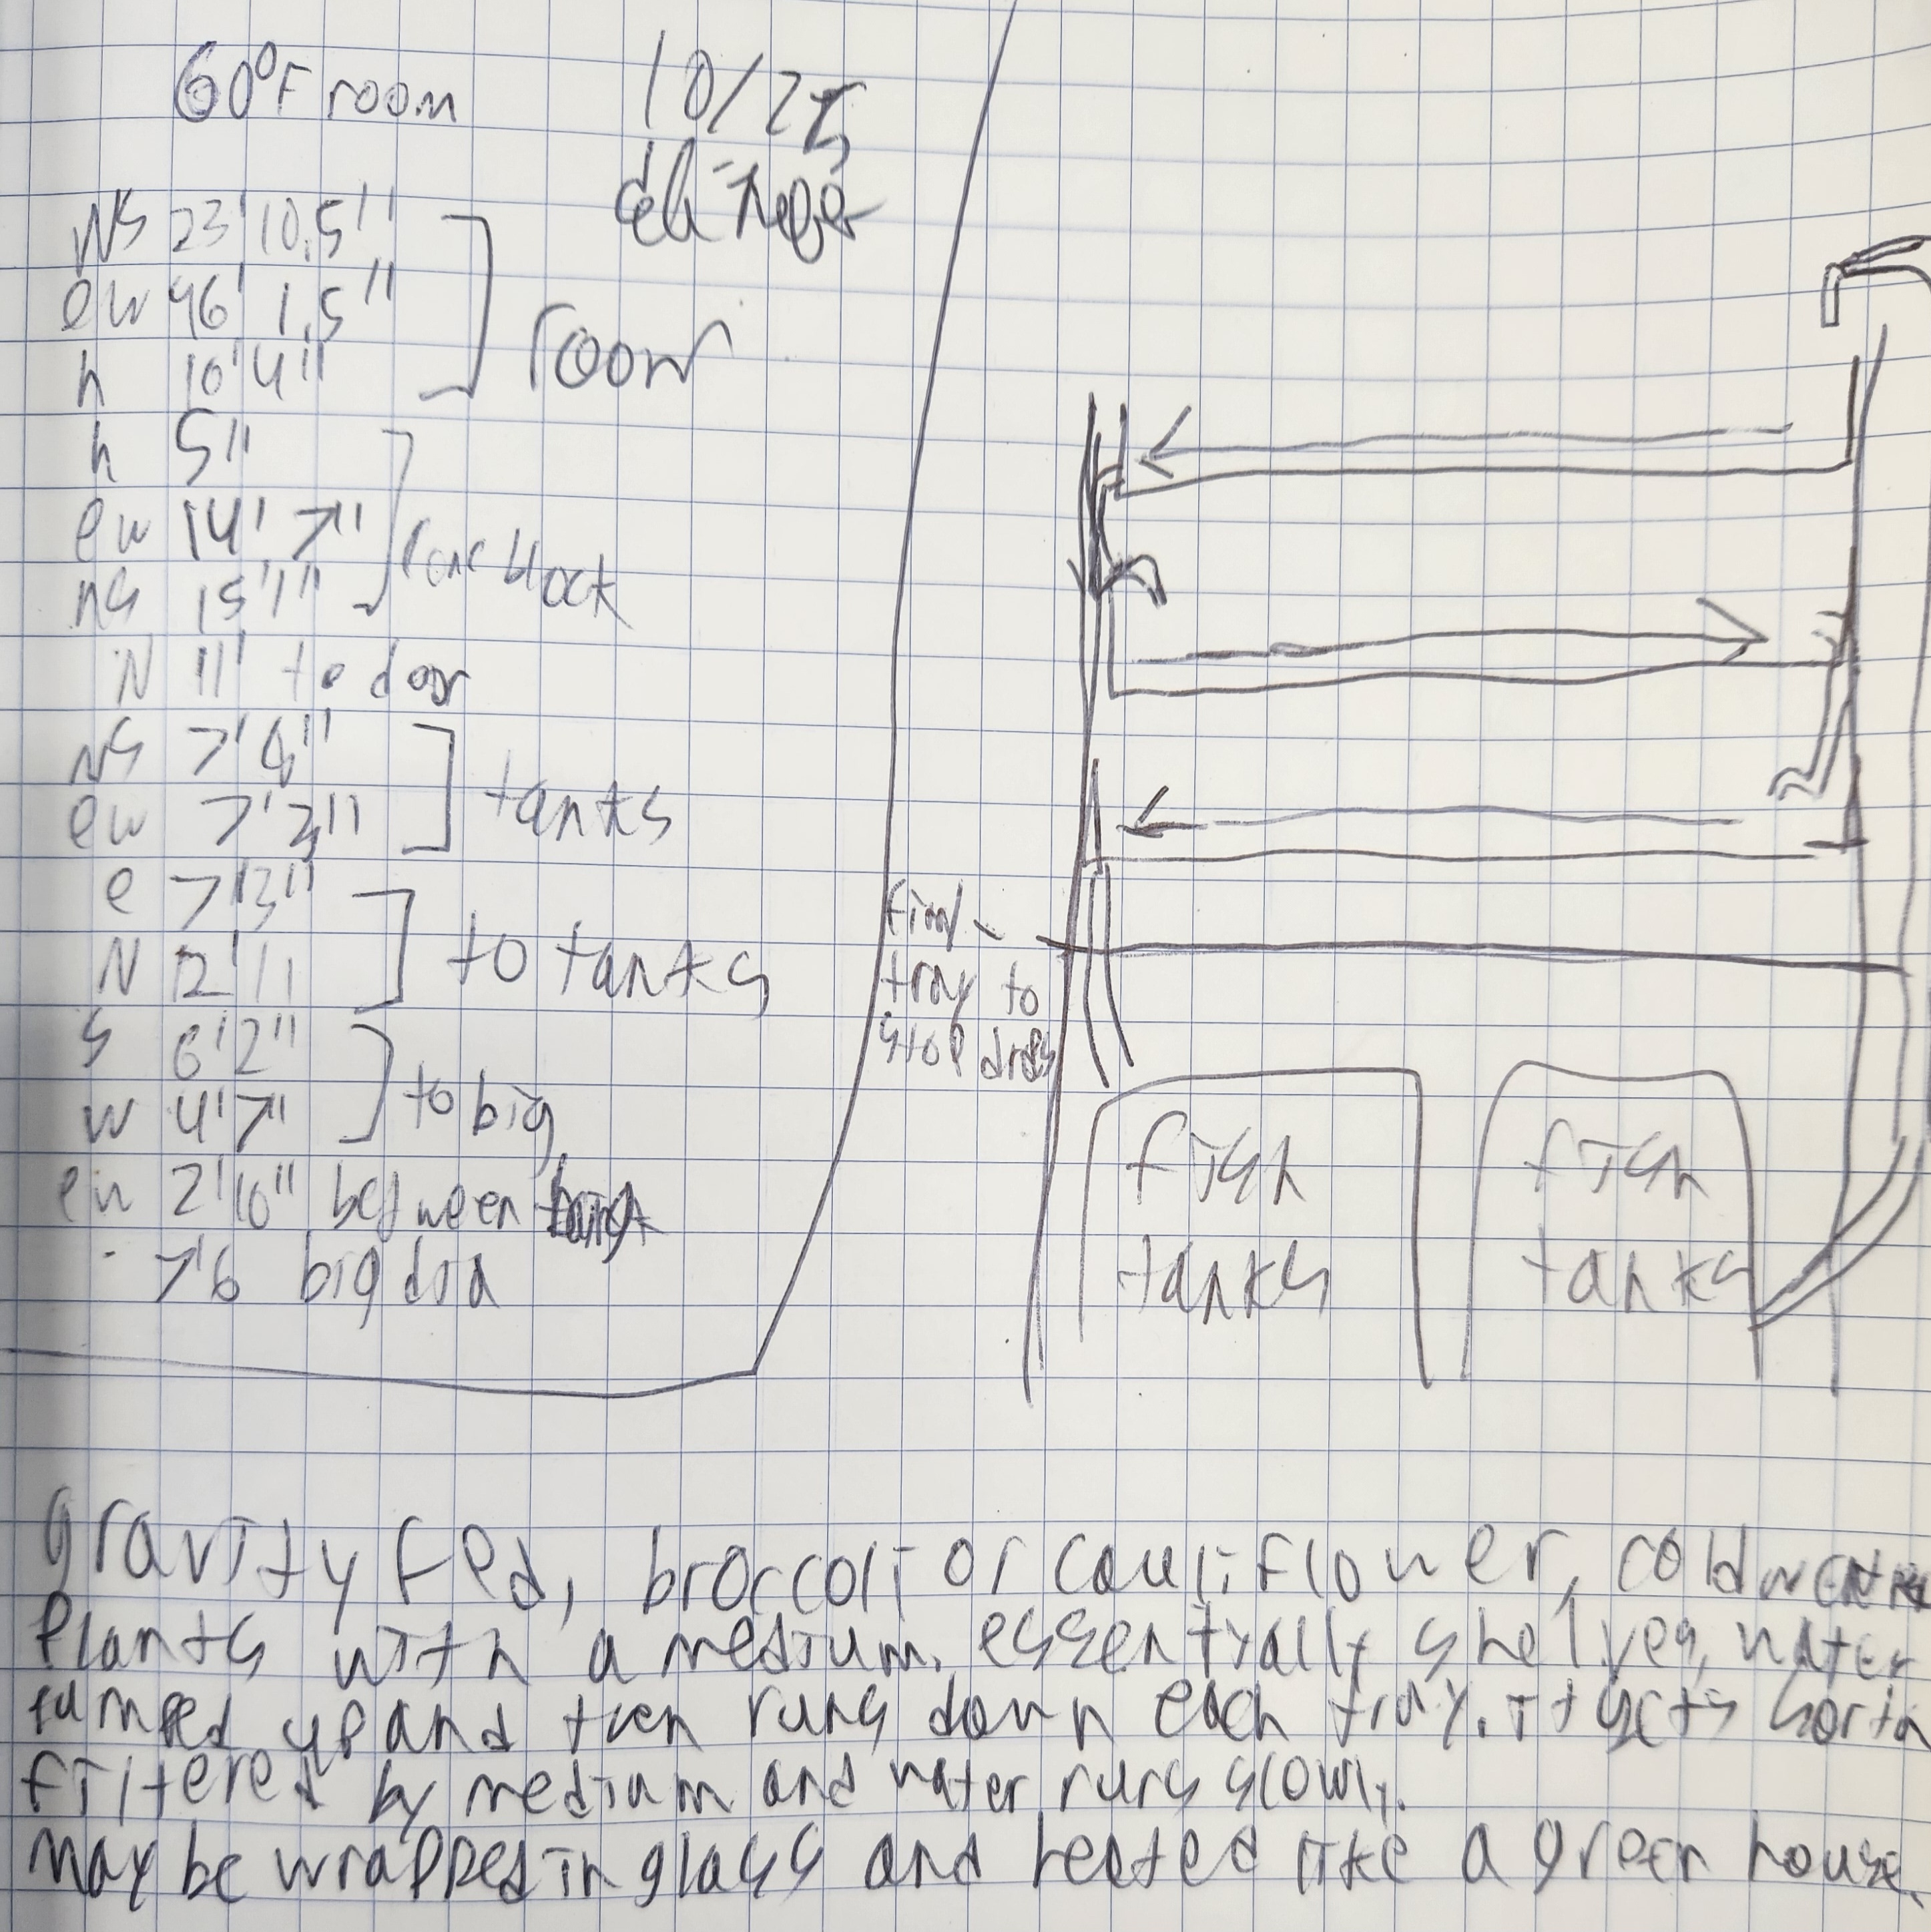 60°F room
10/25
NS 23' 10.5"
ew 46' 1.5"
h 10'4"
room
h 5"
ew 14' 7"
NS 15'1"
N 11' to door
NS 7'4"
ew 7'2"
tanks
e 7'3"
N 12'11
to tanks
S 6'2"
w 4'7"
to big
ew 2'10" between
7'6 big dia
final
tray to
stop
fish
tanks
fish
tanks
gravity fed, broccoli or cauliflower, cold
plants with a medium. essentially shelves, water
pumped up and then runs down each tray. it gets
filtered by medium and water runs slowly.
may be wrapped in glass and heated like a green house.